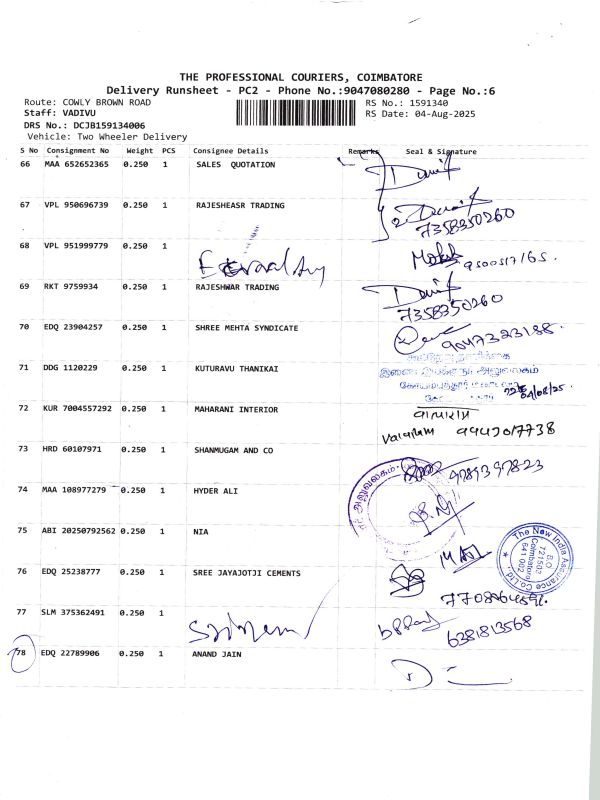 THE PROFESSIONAL COURIERS, COIMBATORE
Delivery Runsheet - PC2 - Phone No.:9047080280 - Page No.:6
Route: COWLY BROWN ROAD RS No.: 1591340
Staff: VADIVU RS Date: 04-Aug-2025
DRS No.: DCJB159134006
Vehicle: Two Wheeler Delivery
S No Consignment No Weight PCS Consignee Details Remarks Seal & Signature
66 MAA 652652365 0.250 1 SALES QUOTATION
67 VPL 950696739 0.250 1 RAJESHEASR TRADING
7358350260
68 VPL 951999779 0.250 1
69 RKT 9759934 0.250 1 RAJESHWAR TRADING
7358350260
70 EDQ 23904257 0.250 1 SHREE MEHTA SYNDICATE
9047323188.
71 DDG 1120229 0.250 1 KUTURAVU THANIKAI
04/08/25.
72 KUR 7004557292 0.250 1 MAHARANI INTERIOR
73 HRD 60107971 0.250 1 SHANMUGAM AND CO
74 MAA 108977279 0.250 1 HYDER ALI
75 ABI 20250792562 0.250 1 NIA
The New India Assurance Co. Ltd.
B.O
721502
Coimbatore
641 002
76 EDQ 25238777 0.250 1 SREE JAYAJOTJI CEMENTS
77 SLM 375362491 0.250 1
6381813568
78 EDQ 22789906 0.250 1 ANAND JAIN